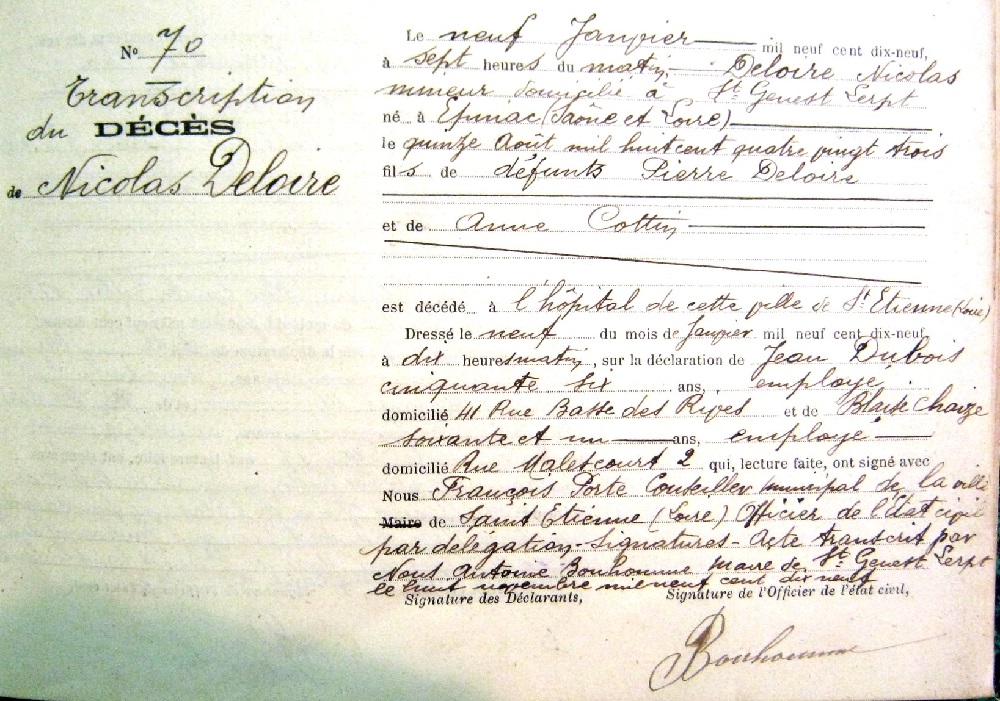 N° 70
Transcription
du DÉCÈS
de Nicolas Deloire
Le neuf Janvier mil neuf cent dix-neuf,
à sept heures du matin Deloire Nicolas
mineur domicilié à St Genest Lerpt
né à Epinac (Saône et Loire)
le quinze Août mil huit cent quatre vingt trois
fils de défunts Pierre Deloire
et de Anne Cottin
est décédé à l'hôpital de cette ville de St Etienne (Loire)
Dressé le neuf du mois de Janvier mil neuf cent dix-neuf,
à dix heures matin, sur la déclaration de Jean Dubois
cinquante six ans, employé
domicilié 41 Rue Basse des Rives et de Blaise Chaize
soixante et un ans, employé
domicilié Rue Malescourt 2 qui, lecture faite, ont signé avec
Nous François Porte Conseiller municipal de la ville
Maire de Saint Etienne (Loire) Officier de l'état civil
par délégation - Signatures - Acte transcrit par
Nous Antoine Bonhomme Maire de St Genest Lerpt
le huit novembre mil neuf cent dix neuf
Signature des Déclarants, Signature de l'Officier de l'état civil,
Bonhomme